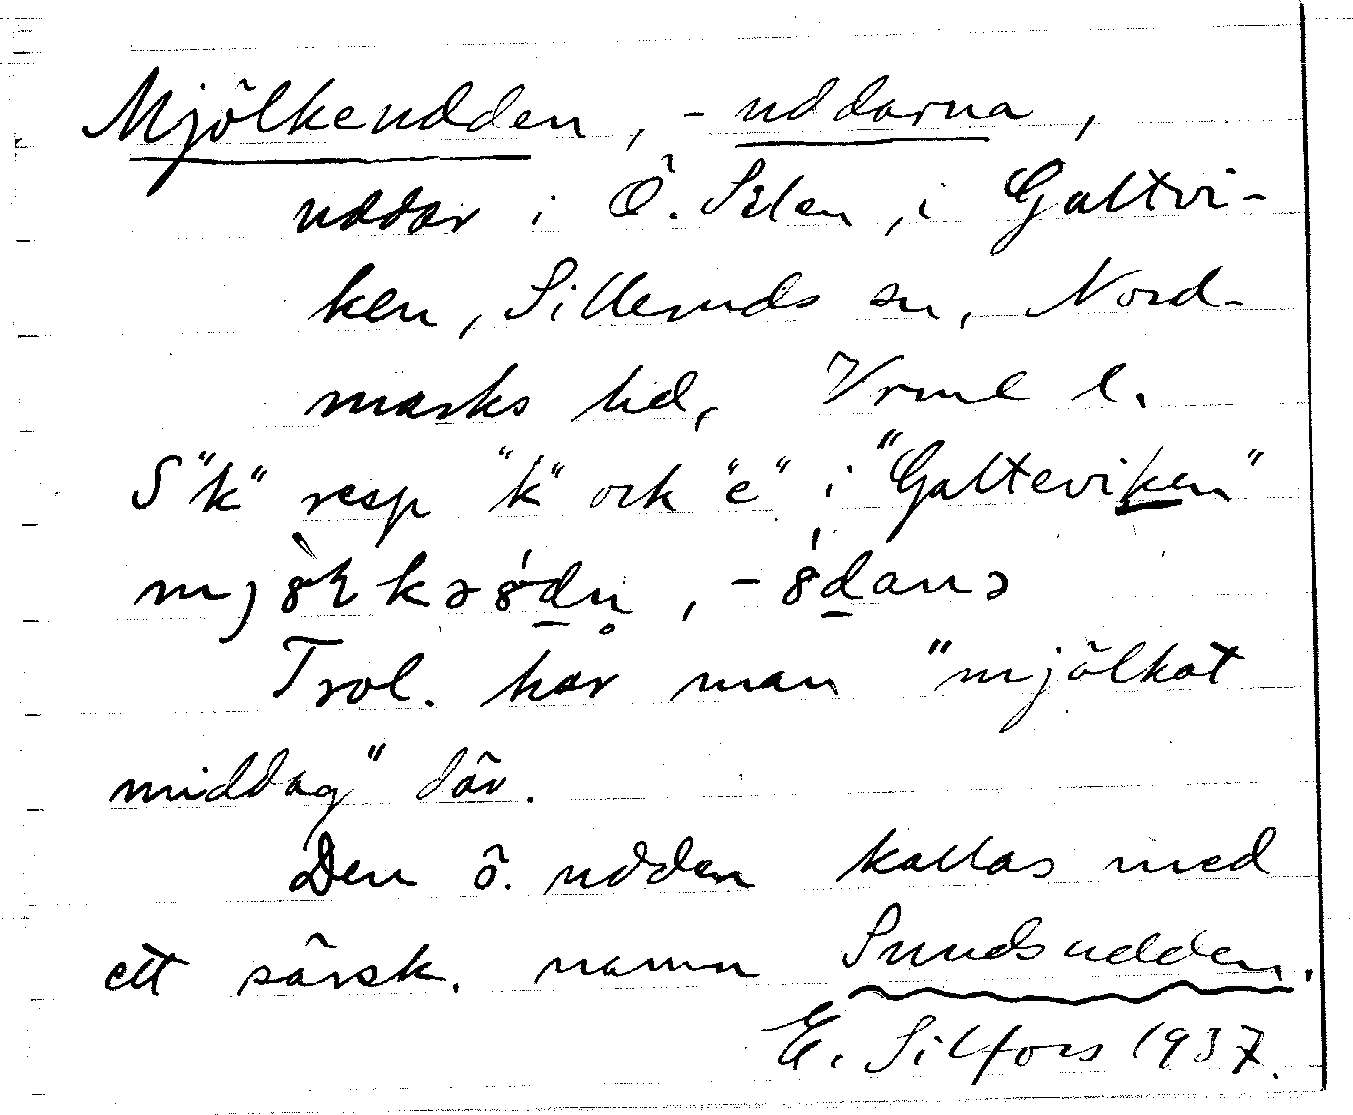 Mjölkeudden, -uddarna,
uddar i Ö. Selen, i Galtvi-
ken, Silleruds sn, Nord-
marks hd, Vrml l.
S "k" resp "k" och "e" i "Galteviken"
Trol. har man "mjölkat
middag" där.
Den ö. udden kallas med
ett särsk. namn Sundsudden.
E. Silfors 1937.